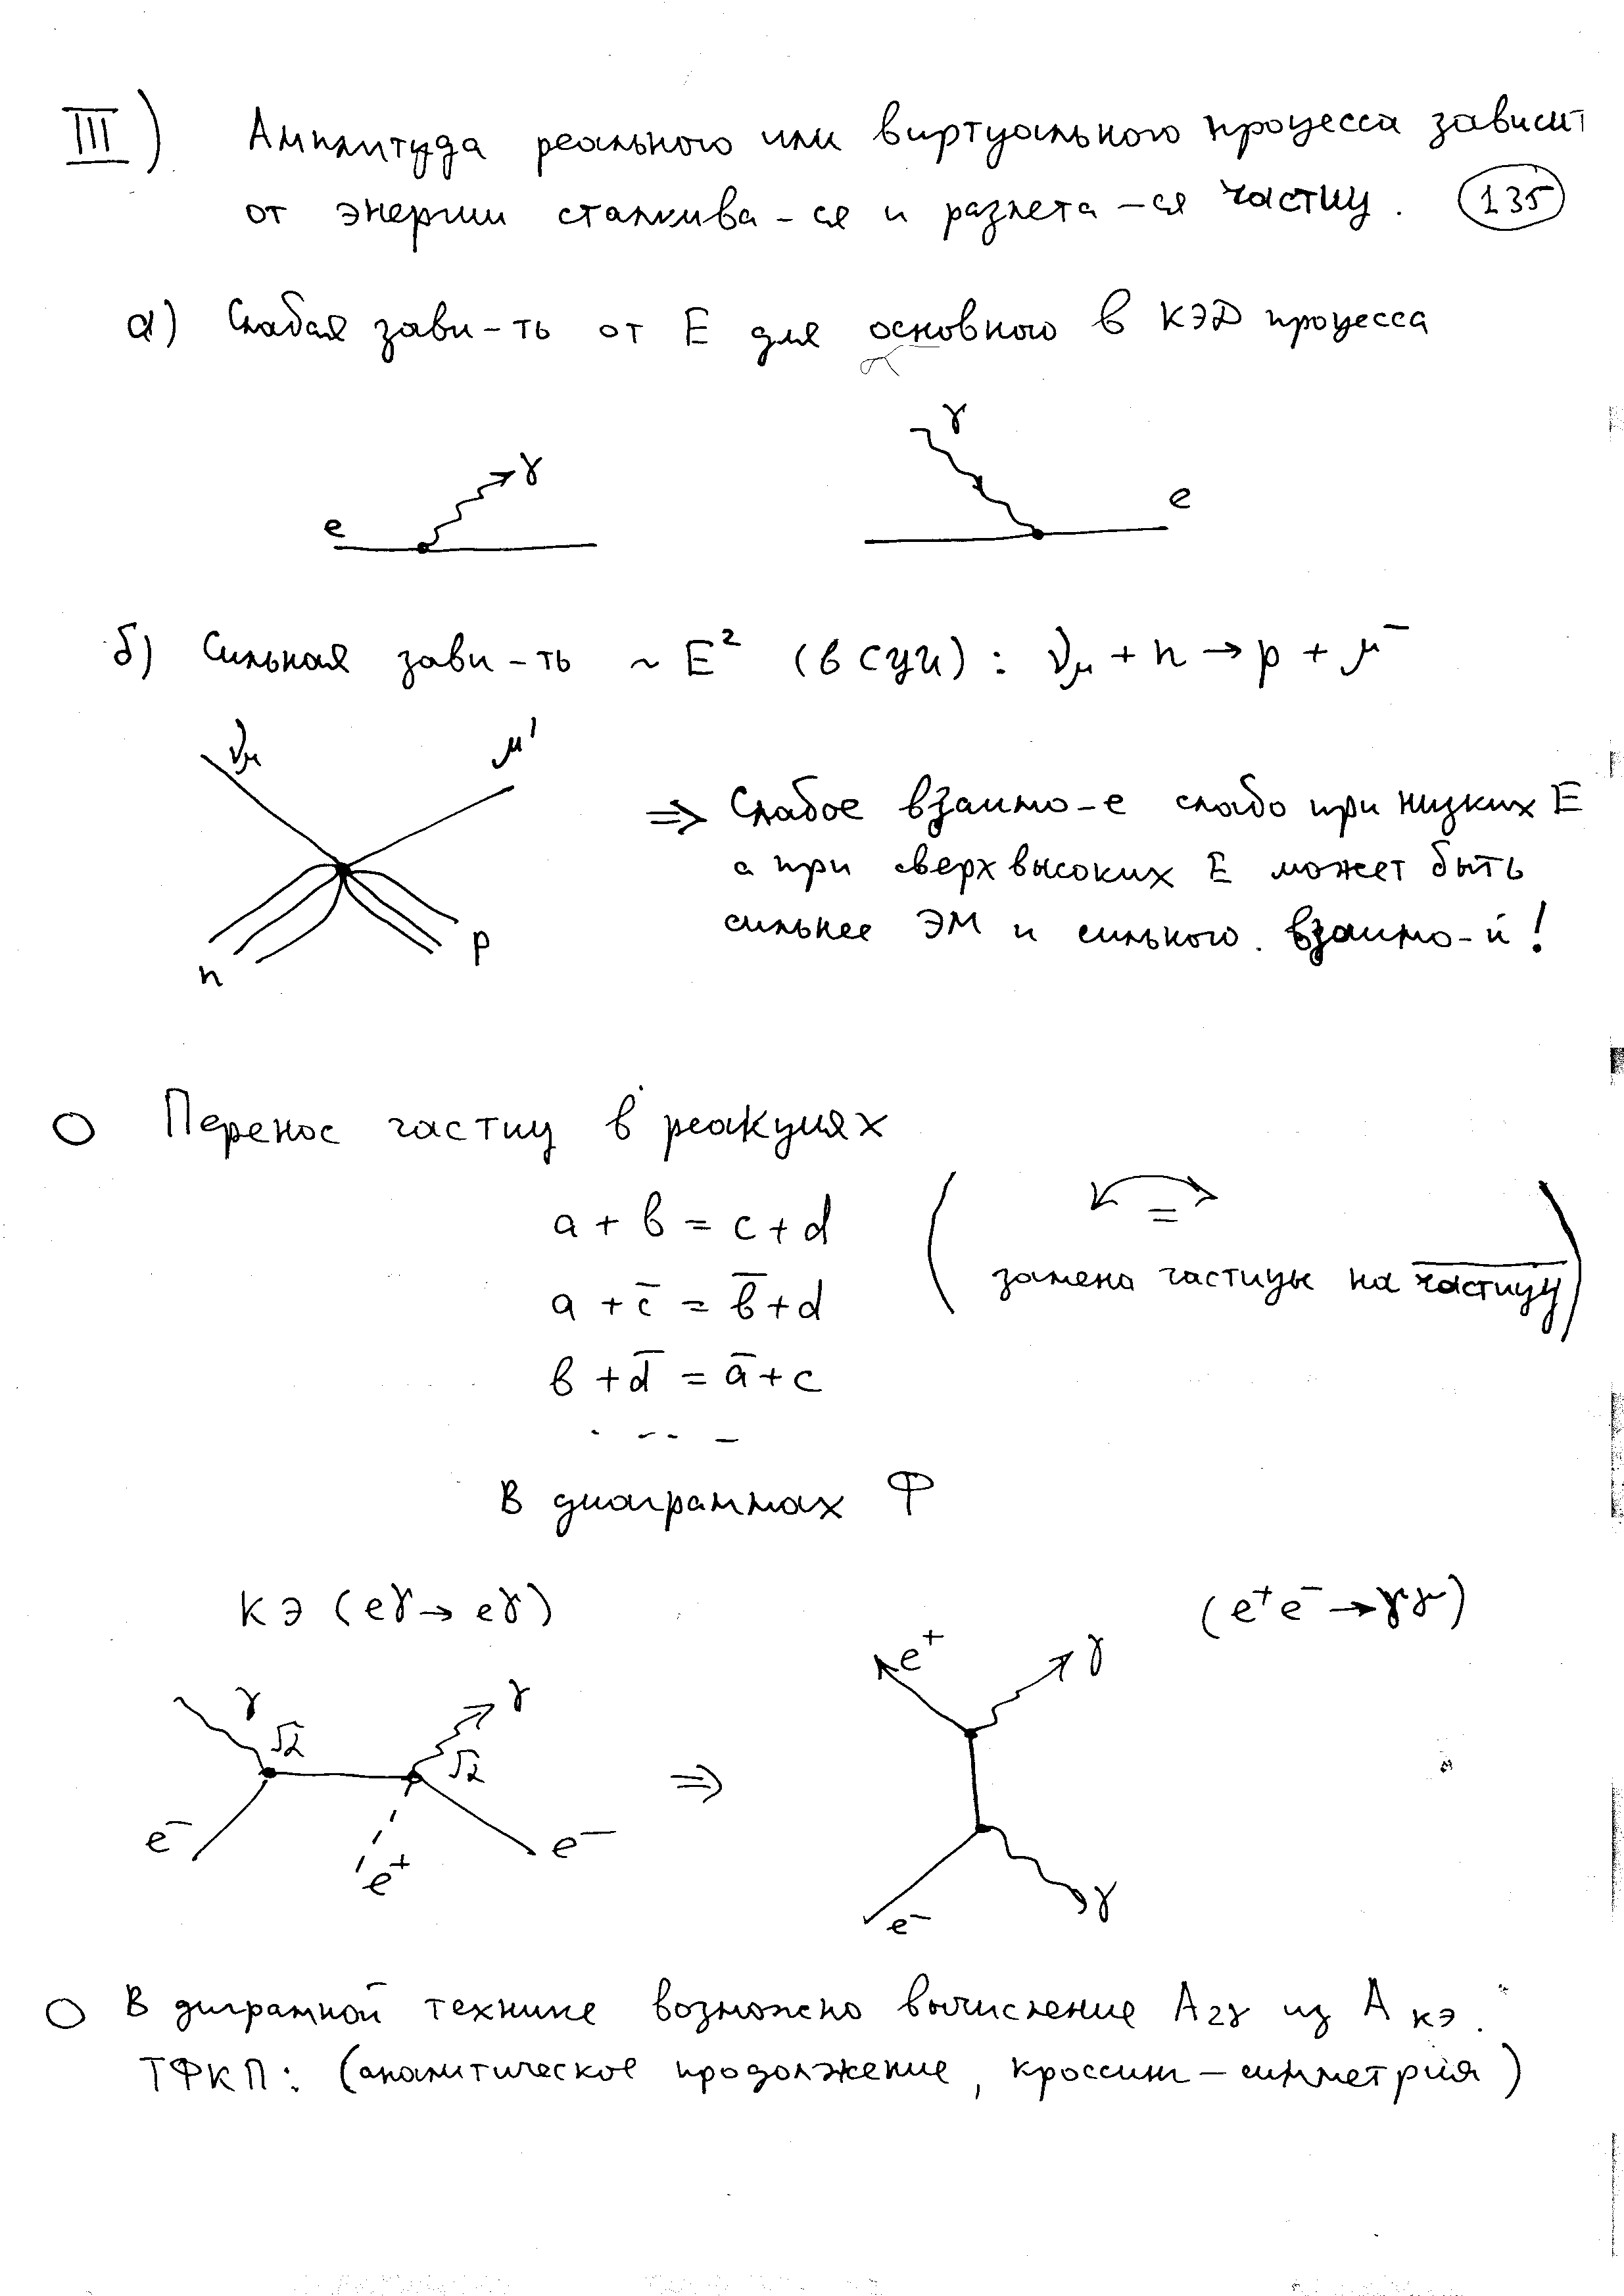 III) Амплитуда реального или виртуального процесса зависит
от энергии сталкива-ся и разлета-ся частиц. 135
а) Слабая зави-ть от E для основного в КЭД процесса
γ
γ
e
e
б) Сильная зави-ть ~ E² (в СЦИ): ν_μ + n → p + μ⁻
ν_μ
μ'
⇒ Слабое взаимо-е слабо при низких E
а при сверхвысоких E может быть
сильнее ЭМ и сильного взаимо-й!
n
p
○ Перенос частиц в реакциях
a + b = c + d
=
замена частицы на \overline{частицу}
a + c̄ = b̄ + d
b + d̄ = ā + c
В диаграммах Ф
КЭ (eγ → eγ)
(e⁺e⁻ → γγ)
e⁺
γ
γ
γ
√α
√α
⇒
e⁻
e⁺
e⁻
γ
e⁻
○ В диграмной технике возможно вычисление A_{2γ} из A_{КЭ}.
ТФКП: (аналитическое продолжение, кроссинг-симметрия)